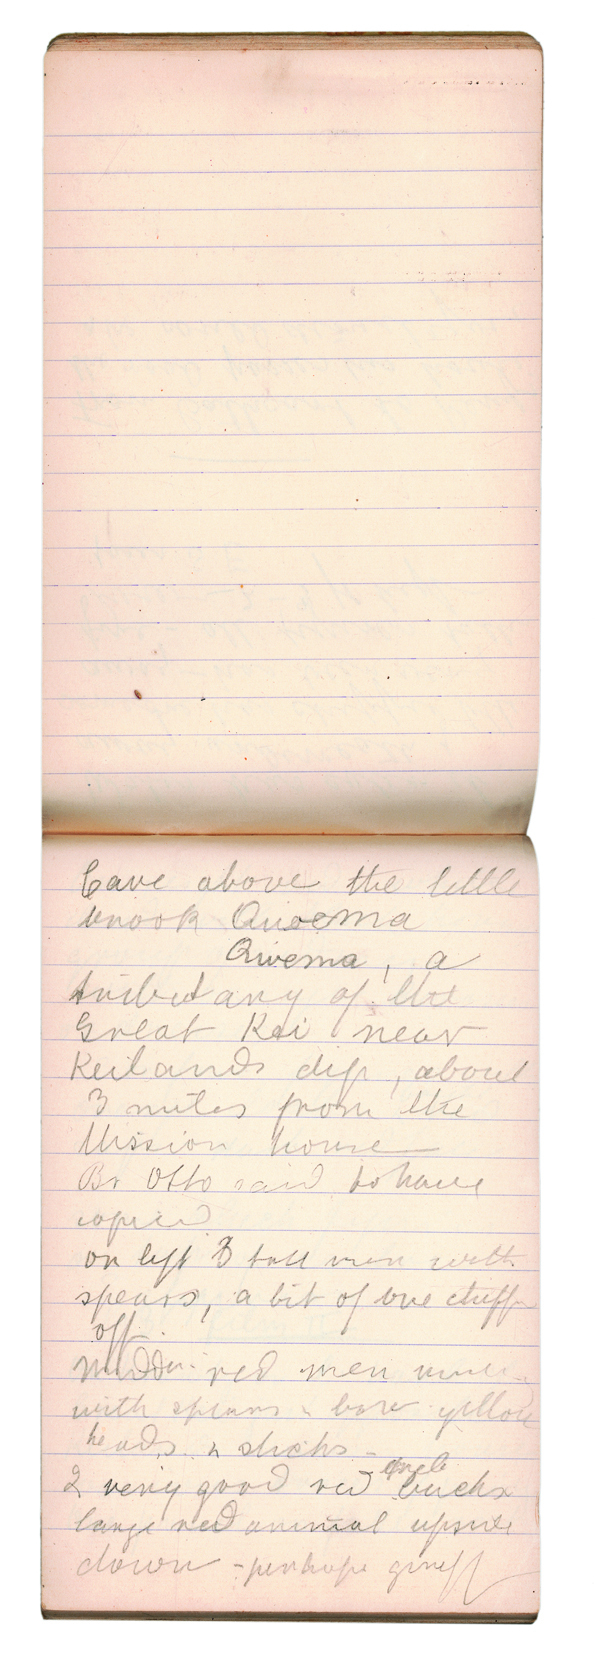 Cave above the little
brook Qwema
Qwema, a
tributary of the
Great Kei near
Keilands dip, about
3 miles from the
Mission house
Br Otto said to have
copied
on left 3 tall men with
spears, a bit of one chipped
off.
red men
with spears & bow yellow
heads & sticks -
2 very good red bucks
large red animal upside
down - perhaps giraff